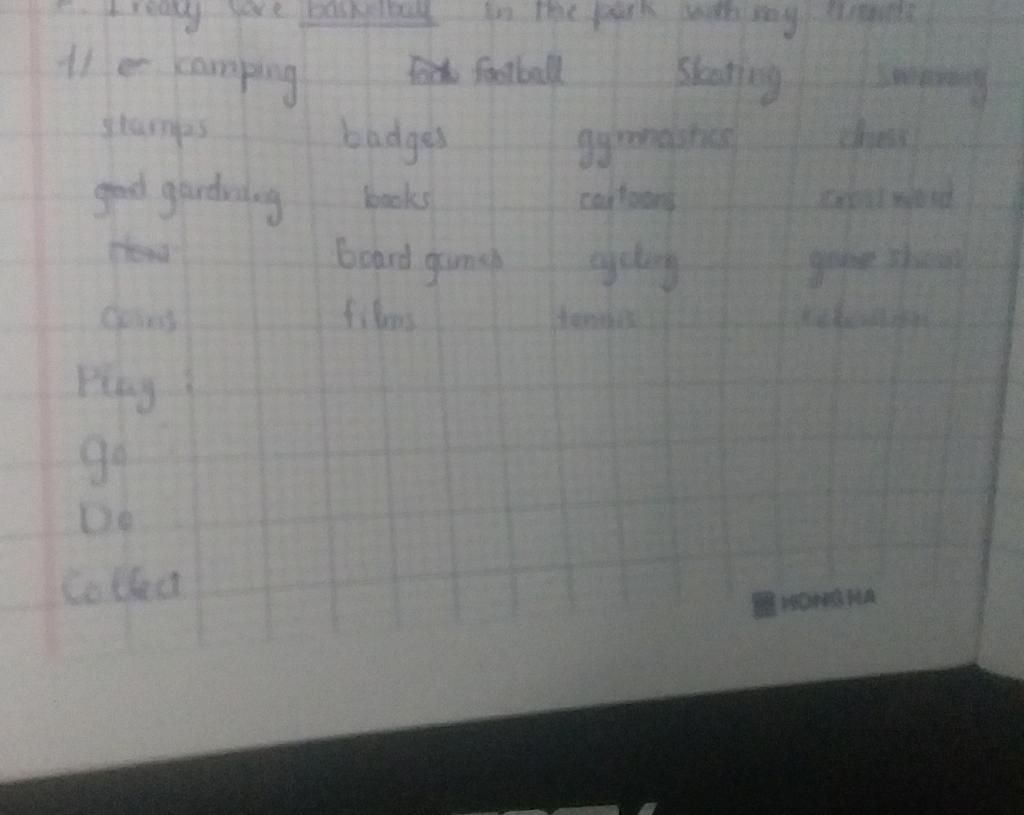 I really love basketball in the park with my friends
11 camping football Skating
stamps badges gymnastics chess
gardning books cartoons crossword
board games cycling game shows
coins films tennis television
Play :
go
Do
Collect
HONG HA